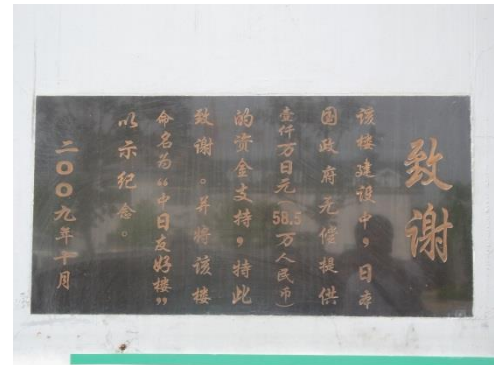 致谢
该楼建设中，日本
国政府无偿提供
壹仟万日元（58.5
万人民币）
的资金支持，特此
致谢。并将该楼
命名为“中日友好楼”
以示纪念。
二〇〇九年十月